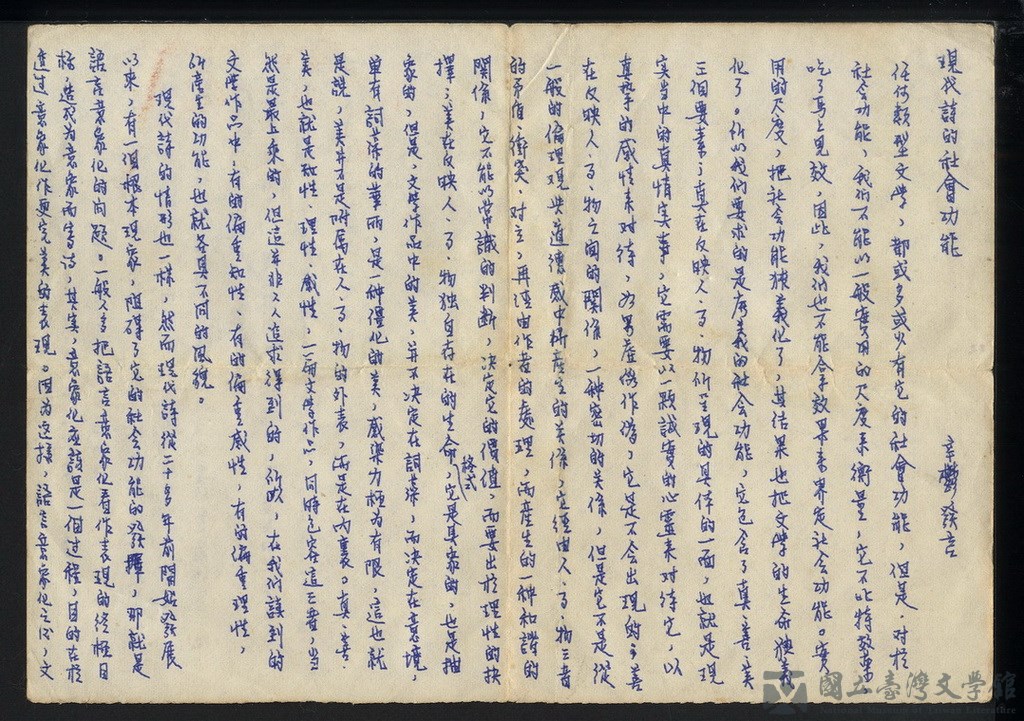 現代詩的社會功能
辛鬱發言
任何類型文學，都或多或少有它的社會功能，但是，對於
社会功能，我們不能以一般實用的尺度來衡量，它不比特效藥，
吃了馬上見效，因此，我們也不能合乎效果來界定社会功能。實
用的尺度，把社会功能狹義化了，其結果也把文學的生命狹義
化了。所以我們要求的是廣義的社会功能，它包含了真、善、美
三個要素；真在反映人、事、物所呈現的具体的一面，也就是現
實当中的真情实事，它需要以一顆誠實的心靈來对待它，以
真摯的感情來对待，如果虛偽作偽，它是不会出現的；善
在反映人、事、物之間的關係，一种密切的关係，但是它不是從
一般的倫理現世道德感中所產生的关係，它經由人、事、物三者
的矛盾、衝突、对立，再經由作者的處理，而產生的一种和諧的
關係，它不能以常識的判断，決定它的價值，而要出於理性的抉
擇；美在反映人、事、物独自存在的生命格式，它是具象的，也是抽
象的，但是，文學作品中的美，並不決定在詞藻，而決定在意境，
單有詞藻的華丽，是一种僵化的美，感染力極为有限，這也就
是說，美並不是附屬在人、事、物的外表，而是在內裏。真、善、
美，也就是知性、理性、感性，一篇文學作品，同時包容這三者，当
然是最上乘的，但這並非人人追求得到的，所以，在我們讀到的
文學作品中，有的偏重知性、有的偏重感性，有的偏重理性，
所產生的功能，也就各具不同的風貌。
現代詩的情形也一樣，然而現代詩從二十多年前開始發展
以來，有一個根本現象，阻碍了它的社会功能的發揮，那就是
語言意象化的问題。一般人多把語言意象化看作表現的終極目
标，造成为意象而寫詩，其实，意象化应該是一個过程，目的在於
透过意象化作更完美的表現。因为這樣，語言意象化之外，文
國立臺灣文學館
National Museum of Taiwan Literature